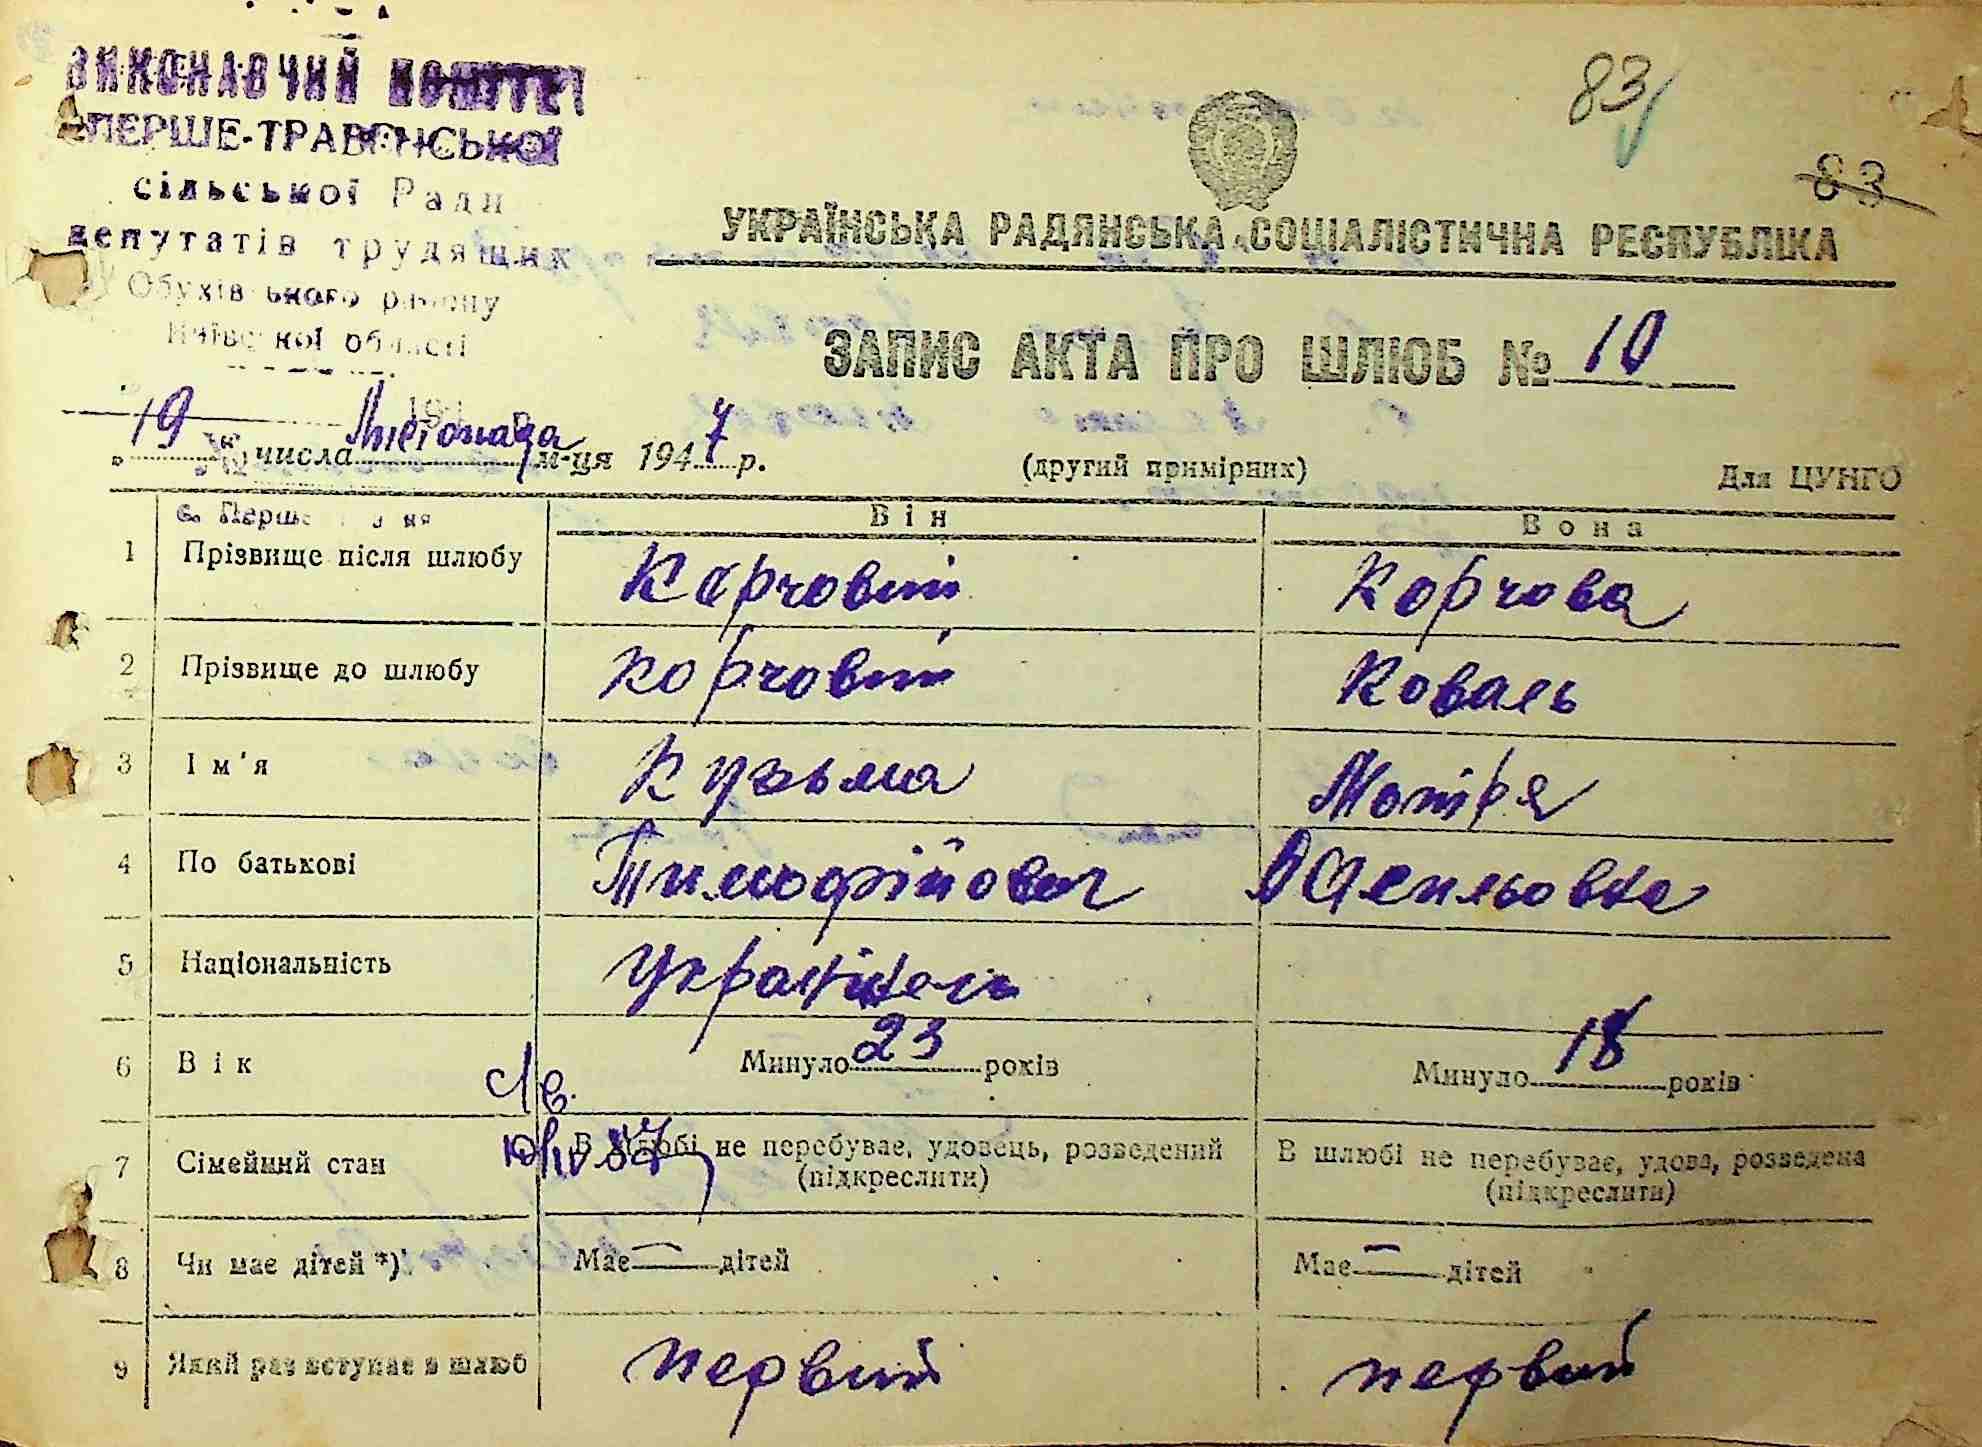 ВИКОНАВЧИЙ КОМІТЕТ
ПЕРШЕ-ТРАВЕНСЬКОЇ
сільської Ради
депутатів трудящих
Обухівського району
Київської області
83
83
УКРАЇНСЬКА РАДЯНСЬКА СОЦІАЛІСТИЧНА РЕСПУБЛІКА
ЗАПИС АКТА ПРО ШЛЮБ № 10
"19" числа Листопада м-ця 1947 р.
(другий примірник) Для ЦУНГО
с. Перше
Він Вона
1 Прізвище після шлюбу Корчовий Корчова
2 Прізвище до шлюбу Корчовий Коваль
3 Ім'я Кузьма Мотря
4 По батькові Тимофійович Василь овна
5 Національність Українець
6 Вік Минуло 23 років Минуло 18 років
7 Сімейний стан В шлюбі не перебуває, удовець, розведений (підкреслити) В шлюбі не перебуває, удова, розведена (підкреслити)
8 Чи має дітей *) Має — дітей Має — дітей
9 Який раз вступає в шлюб первий первий